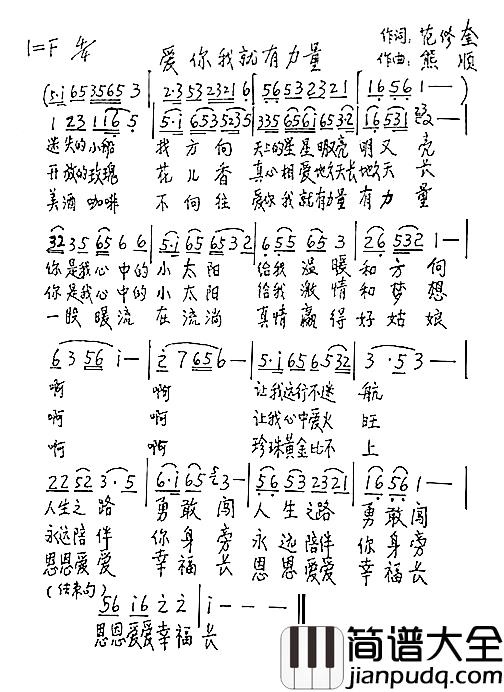 1=F 4/4 爱你我就有力量 作词:范修奎
作曲:熊顺
(5·i 6535653 | 2·353 2321 6 | 56532321 | 1656 1—)
1 23 1165 | 5·i 6535235 | 335656i65332 | 16531 2——
迷失的小船 找方向 天上的星星明又亮 明又亮
开放的玫瑰 花儿香 真心相爱地久天长地久天长
美酒咖啡 不向往 爱你我就有力量有力量
32 35 65 6 6 | 5·i 65 6532 | 6 55 65 3 | 26 532 1—|
你是我心中的小太阳 给我温暖和方向
你是我心中的小太阳 给我激情和梦想
一股暖流在流淌 真情赢得好姑娘
6 3 56 i— | 2 7 656— | 5·i 656532 | 3·53—|
啊 啊 让我远行不迷航
啊 啊 让我心中爱火旺
啊 啊 珍珠黄金比不上
2252 3·5 | 6·i 65 3— | 56532321 | 1656 1—|
人生之路 勇敢闯 人生之路 勇敢闯
永远陪伴 你身旁 永远陪伴 你身旁
恩恩爱爱 幸福长 恩恩爱爱 幸福长
(结束句)
56 i6 2 2 | i — — — ‖
恩恩爱爱幸福长
简谱大全
jianpudq.com